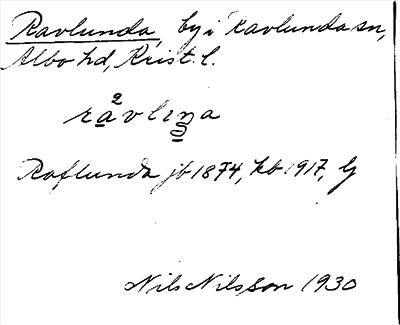 Ravlunda, by i Ravlunda sn,
Albo hd, Krist. l.
ra²vliṇa
Raflunda jb 1874, kb 1917, Gj
Nils Nilsson 1930